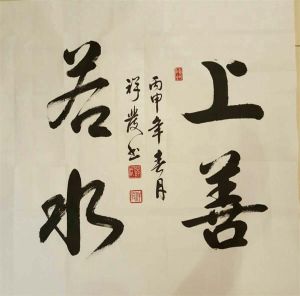 上善
若水
丙申年春月
祥发书